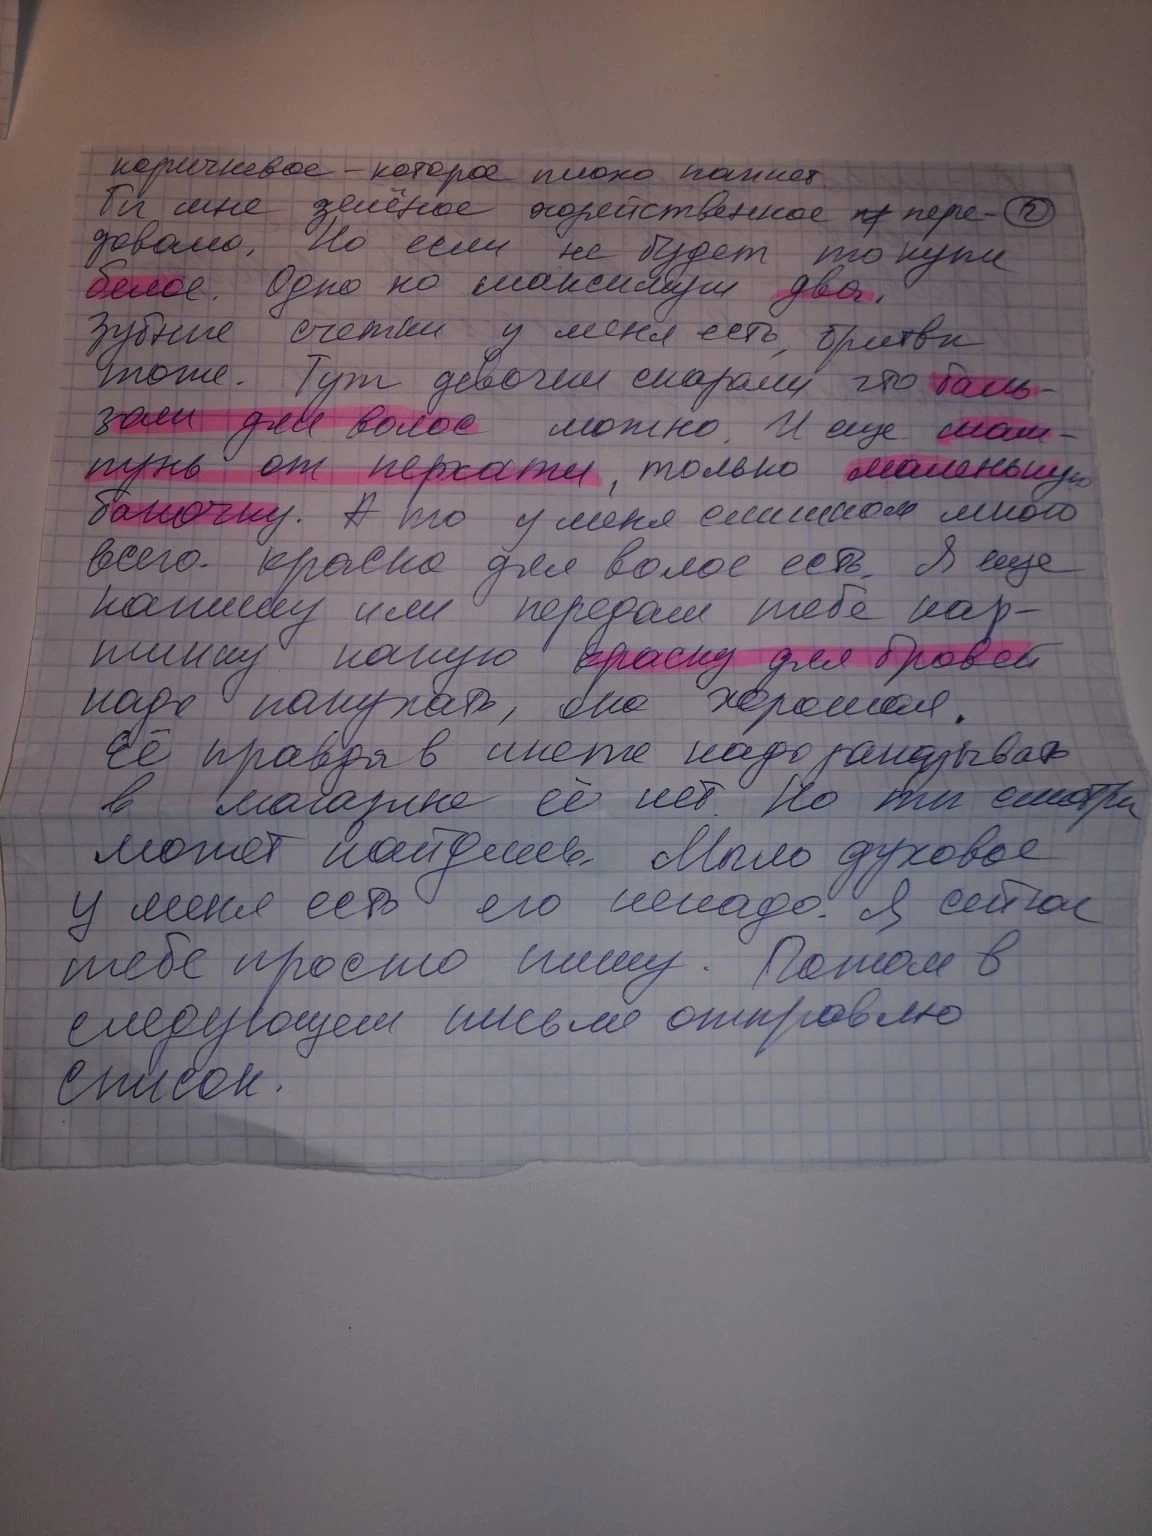 коричневое – которое плохо пахнет
Ты мне зелёное хозяйственное пере- ②
довала. Но если не будет то купи
белое. Одно но максимум два.
Зубные счетки у меня есть, бритвы
тоже. Тут девочки сказали что баль-
зам для волос можно. И еще шам-
пунь от перхоти, только маленькую
баночку. А то у меня слишком много
всего. Краска для волос есть. Я еще
напишу или передам тебе кар-
тинку какую краску для бровей
надо покупать, она хорошая.
Её правда в инете надо заказывать
в магазине её нет. Но ты смотри
может найдешь. Мыло духовое
у меня есть его ненадо. Я сейчас
тебе просто пишу. Потом в
следующем письме отправлю
список.